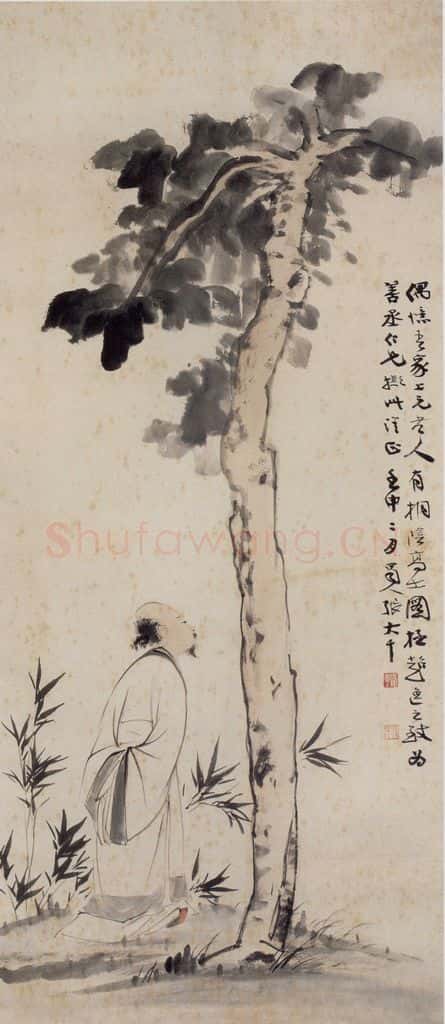 偶憶吾家上元老人有桐陰高士圖極超逸之致為
善丞仁兄擬此請正 壬申二月蜀人張大千
Shufawang.CN